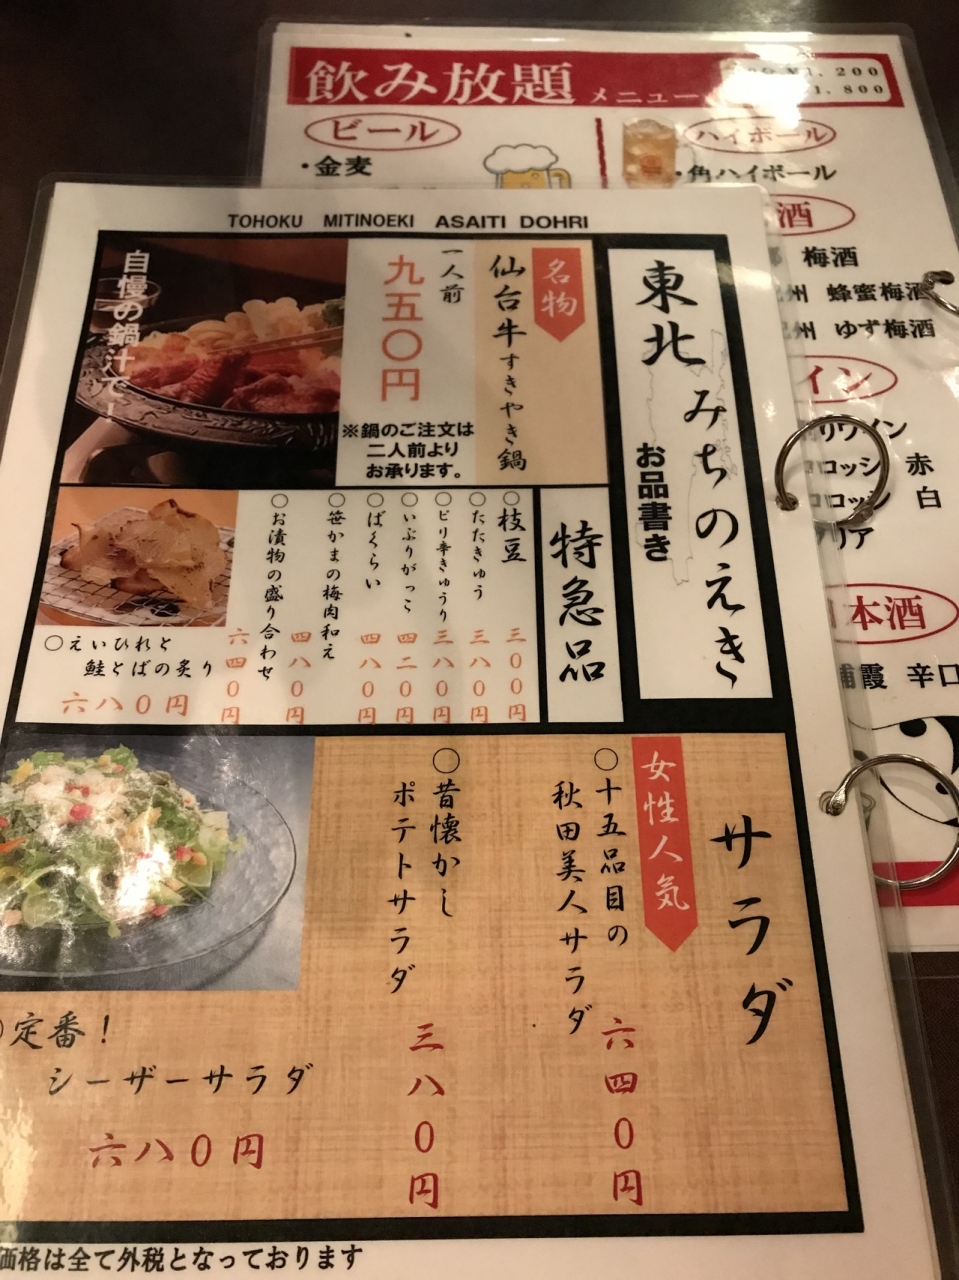 飲み放題 メニュー
1,200
1,800
ビール
・金麦
ハイボール
・角ハイボール
酒
梅酒
州 蜂蜜梅酒
州 ゆず梅酒
イン
ワイン
ロッシ 赤
ロッシ 白
リア
本酒
霞 辛口
TOHOKU MITINOEKI ASAITI DOHRI
東北みちのえき
お品書き
名物
仙台牛すきやき鍋
一人前
九五〇円
※鍋のご注文は
二人前より
お承ります。
自慢の鍋汁で！
特急品
〇枝豆
三〇〇円
〇たたきゅう
三八〇円
〇ピリ辛きゅうり
三八〇円
〇いぶりがっこ
四二〇円
〇ばくらい
四八〇円
〇笹かまの梅肉和え
四八〇円
〇お漬物の盛り合わせ
六四〇円
〇えいひれと
鮭とばの炙り
六八〇円
サラダ
女性人気
〇十五品目の
秋田美人サラダ
六四〇円
〇昔懐かし
ポテトサラダ
三八〇円
〇定番！
シーザーサラダ
六八〇円
価格は全て外税となっております